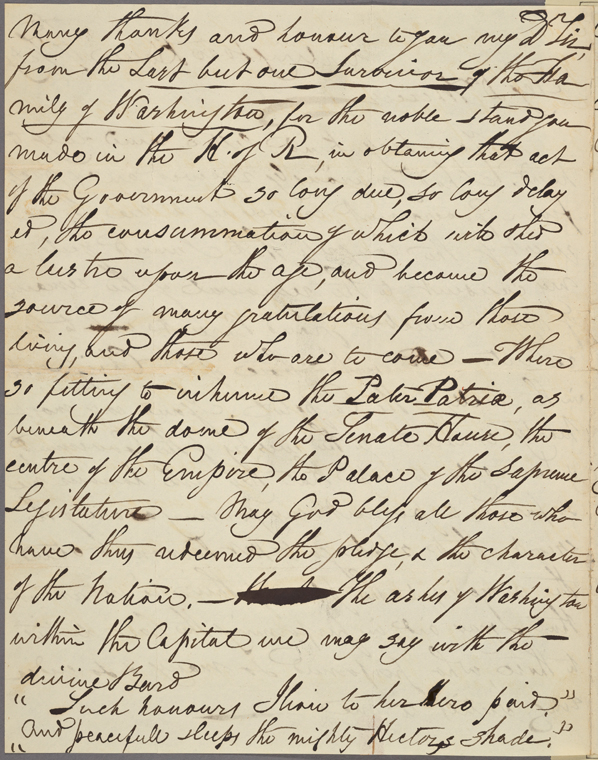 Many thanks and honour to you my Dr Sir,
from the Last but one Survivor of the Fa
mily of Washington, for the noble stand you
made in the H. of R, in obtaining that act
of the Government so long due, so long delay
ed, the consummation of which will shed
a lustre upon the age, and become the
source of many gratulations from those
living, and those who are to come — Where
so fitting to inhume the Pater Patriæ, as
beneath the dome of the Senate House, the
centre of the Empire, the Palace of the Supreme
Legislature — May God bless all those who
have thus redeemed the pledge, & the character
of the Nation. — The ashes of Washington
within the Capital we may say with the
divine Bard
"Such honours Ilion to her Hero paid."
"And peacefull sleeps the mighty Hectors shade."